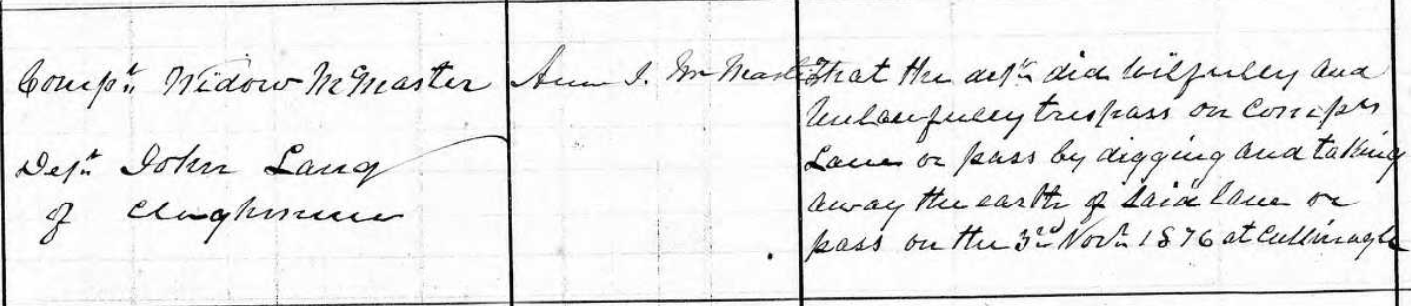 Compt. Widow McMaster
Deft. John Lang
of
Ann J. McMaster
That the deft. did wilfully and
unlawfully trespass on Compts
Lane or pass by digging and taking
away the earth of said lane or
pass on the 3rd Novr. 1876 at